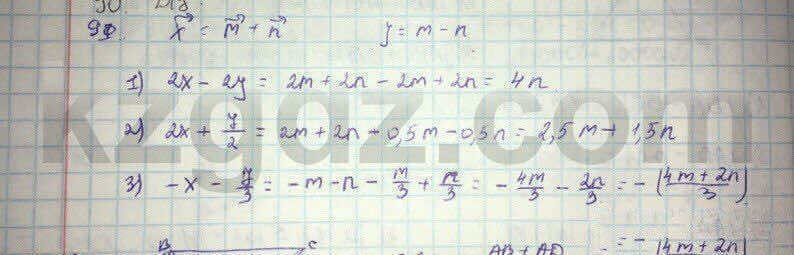 99. x⃗ = m⃗ + n⃗ y = m - n
1) 2x - 2y = 2m + 2n - 2m + 2n = 4n
2) 2x + y/2 = 2m + 2n + 0,5m - 0,5n = 2,5m + 1,5n
3) -x - y/3 = -m - n - m/3 + n/3 = - 4m/3 - 2n/3 = - (4m + 2n)/3
B C AB + AD = - (4m + 2n)
kzgdz.com